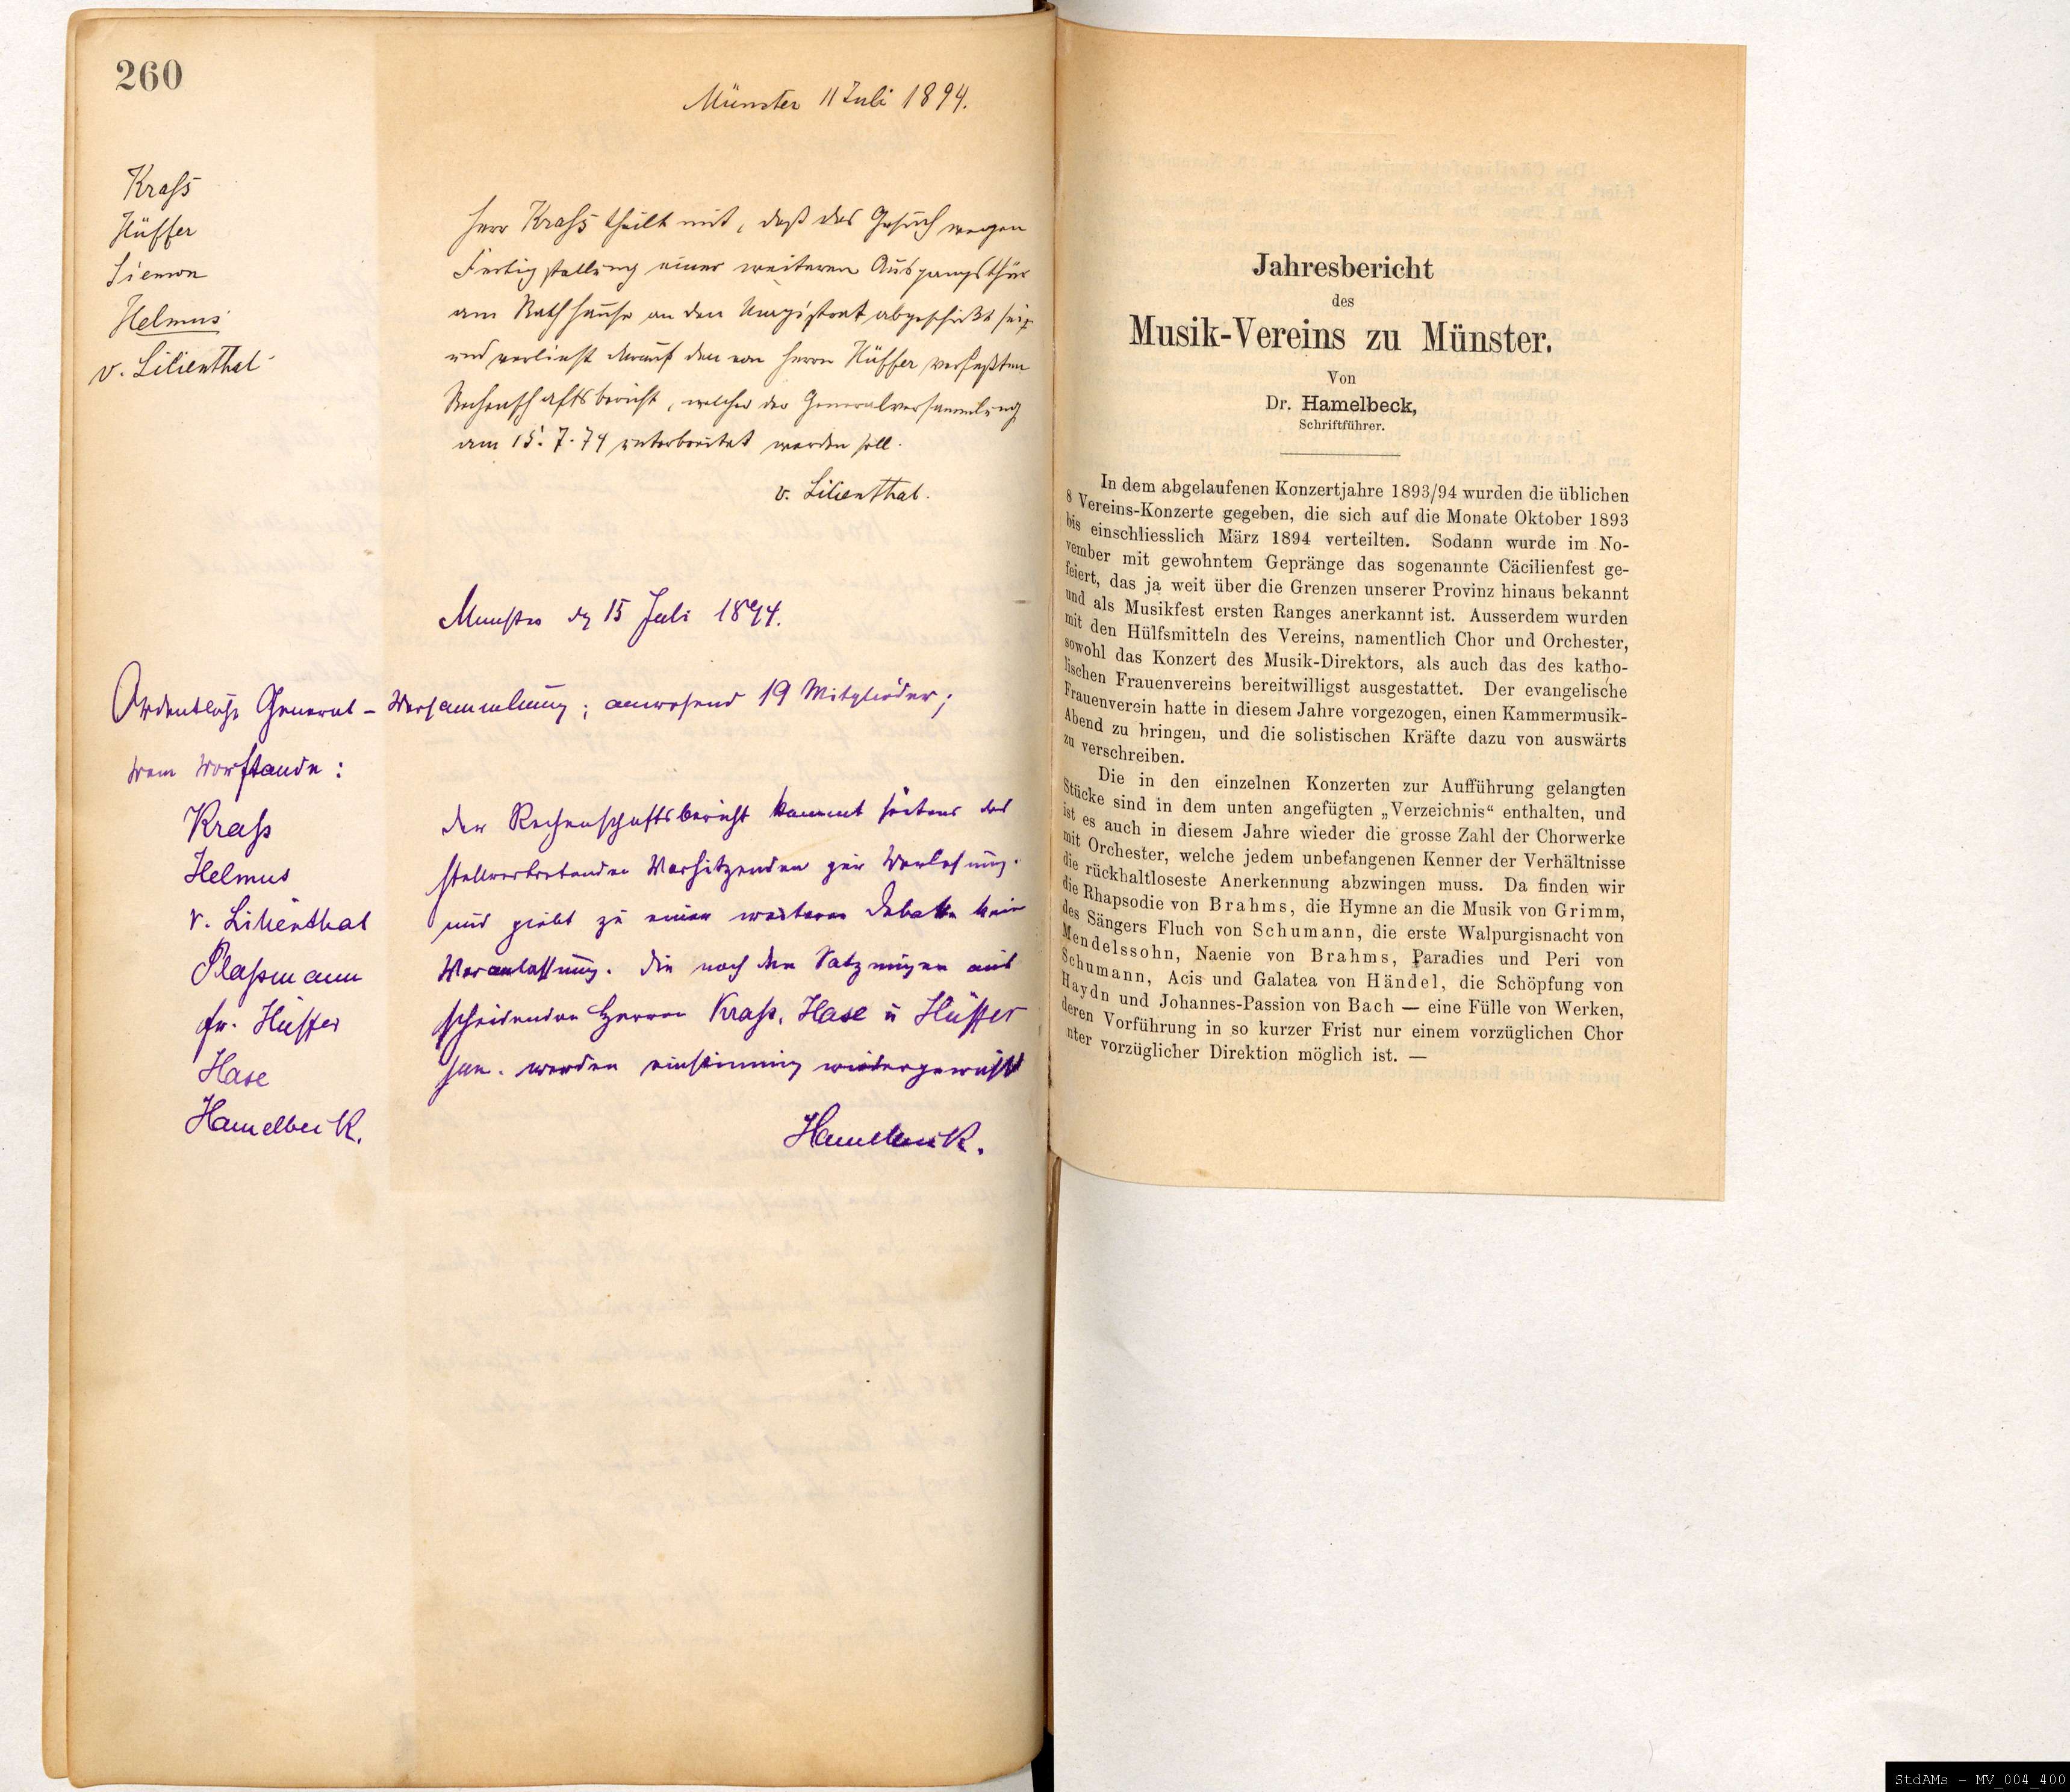 260
Münster 11 Juli 1894.
Kraß
Hüffer
Siemon
Helmus
v. Lilienthal
Herr Kraß theilt mit, daß das Gesuch wegen
Fertigstellung einer weiteren Ausgangsthür
am Rathhause an den Magistrat abgeschickt sei,
und verliest darauf den von Herrn Hüffer verfaßten
Rechenschaftsbericht, welcher der Generalversammlung
am 15. 7. 74 unterbreitet werden soll.
v. Lilienthal.
Munster d 15 Juli 1894.
Ordentliche General-Versammlung; anwesend 19 Mitglieder;
vom Vorstande:
Kraß
Helmus
v. Lilienthal
Plaßmann
fr. Hüffer
Hase
Hamelbeck.
Der Rechenschaftsbericht kommt seitens des
stellvertretenden Vorsitzenden zur Verlesung.
und giebt zu einer weiteren Debatte keine
Veranlassung. Die nach den Satzungen aus
scheidenden Herren Kraß, Hase u Hüffer
sen. werden einstimmig wiedergewählt
Hamelbeck.
Jahresbericht
des
Musik-Vereins zu Münster.
Von
Dr. Hamelbeck,
Schriftführer.
In dem abgelaufenen Konzertjahre 1893/94 wurden die üblichen
8 Vereins-Konzerte gegeben, die sich auf die Monate Oktober 1893
bis einschliesslich März 1894 verteilten. Sodann wurde im No-
vember mit gewohntem Gepränge das sogenannte Cäcilienfest ge-
feiert, das ja weit über die Grenzen unserer Provinz hinaus bekannt
und als Musikfest ersten Ranges anerkannt ist. Ausserdem wurden
mit den Hülfsmitteln des Vereins, namentlich Chor und Orchester,
sowohl das Konzert des Musik-Direktors, als auch das des katho-
lischen Frauenvereins bereitwilligst ausgestattet. Der evangelische
Frauenverein hatte in diesem Jahre vorgezogen, einen Kammermusik-
Abend zu bringen, und die solistischen Kräfte dazu von auswärts
zu verschreiben.
Die in den einzelnen Konzerten zur Aufführung gelangten
Stücke sind in dem unten angefügten „Verzeichnis“ enthalten, und
ist es auch in diesem Jahre wieder die grosse Zahl der Chorwerke
mit Orchester, welche jedem unbefangenen Kenner der Verhältnisse
die rückhaltloseste Anerkennung abzwingen muss. Da finden wir
die Rhapsodie von Brahms, die Hymne an die Musik von Grimm,
des Sängers Fluch von Schumann, die erste Walpurgisnacht von
Mendelssohn, Naenie von Brahms, Paradies und Peri von
Schumann, Acis und Galatea von Händel, die Schöpfung von
Haydn und Johannes-Passion von Bach — eine Fülle von Werken,
deren Vorführung in so kurzer Frist nur einem vorzüglichen Chor
nter vorzüglicher Direktion möglich ist. —
StdAMs - MV_004_400